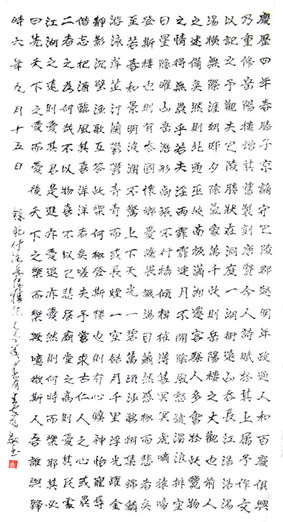 慶曆四年春滕子京謫守巴陵郡越明年政通人和百廢俱興
乃重修岳陽樓增其舊制刻唐賢今人詩賦於其上屬予作文
以記之予觀夫巴陵勝狀在洞庭一湖銜遠山吞長江浩浩湯
湯橫無際涯朝暉夕陰氣象萬千此則岳陽樓之大觀也前人
之述備矣然則北通巫峽南極瀟湘遷客騷人多會於此覽物
之情得無異乎若夫霪雨霏霏連月不開陰風怒號濁浪排空
日星隱曜山岳潛形商旅不行檣傾楫摧薄暮冥冥虎嘯猿啼
登斯樓也則有去國懷鄉憂讒畏譏滿目蕭然感極而悲者矣
至若春和景明波瀾不驚上下天光一碧萬頃沙鷗翔集錦鱗
游泳岸芷汀蘭郁郁青青而或長煙一空皓月千里浮光躍金
靜影沉璧漁歌互答此樂何極登斯樓也則有心曠神怡寵辱
偕忘把酒臨風其喜洋洋者矣嗟夫予嘗求古仁人之心或異
二者之為何哉不以物喜不以己悲居廟堂之高則憂其民處
江湖之遠則憂其君是進亦憂退亦憂然則何時而樂耶其必
曰先天下之憂而憂後天下之樂而樂乎噫微斯人吾誰與歸
時六年九月十五日 錄范仲淹岳陽樓記